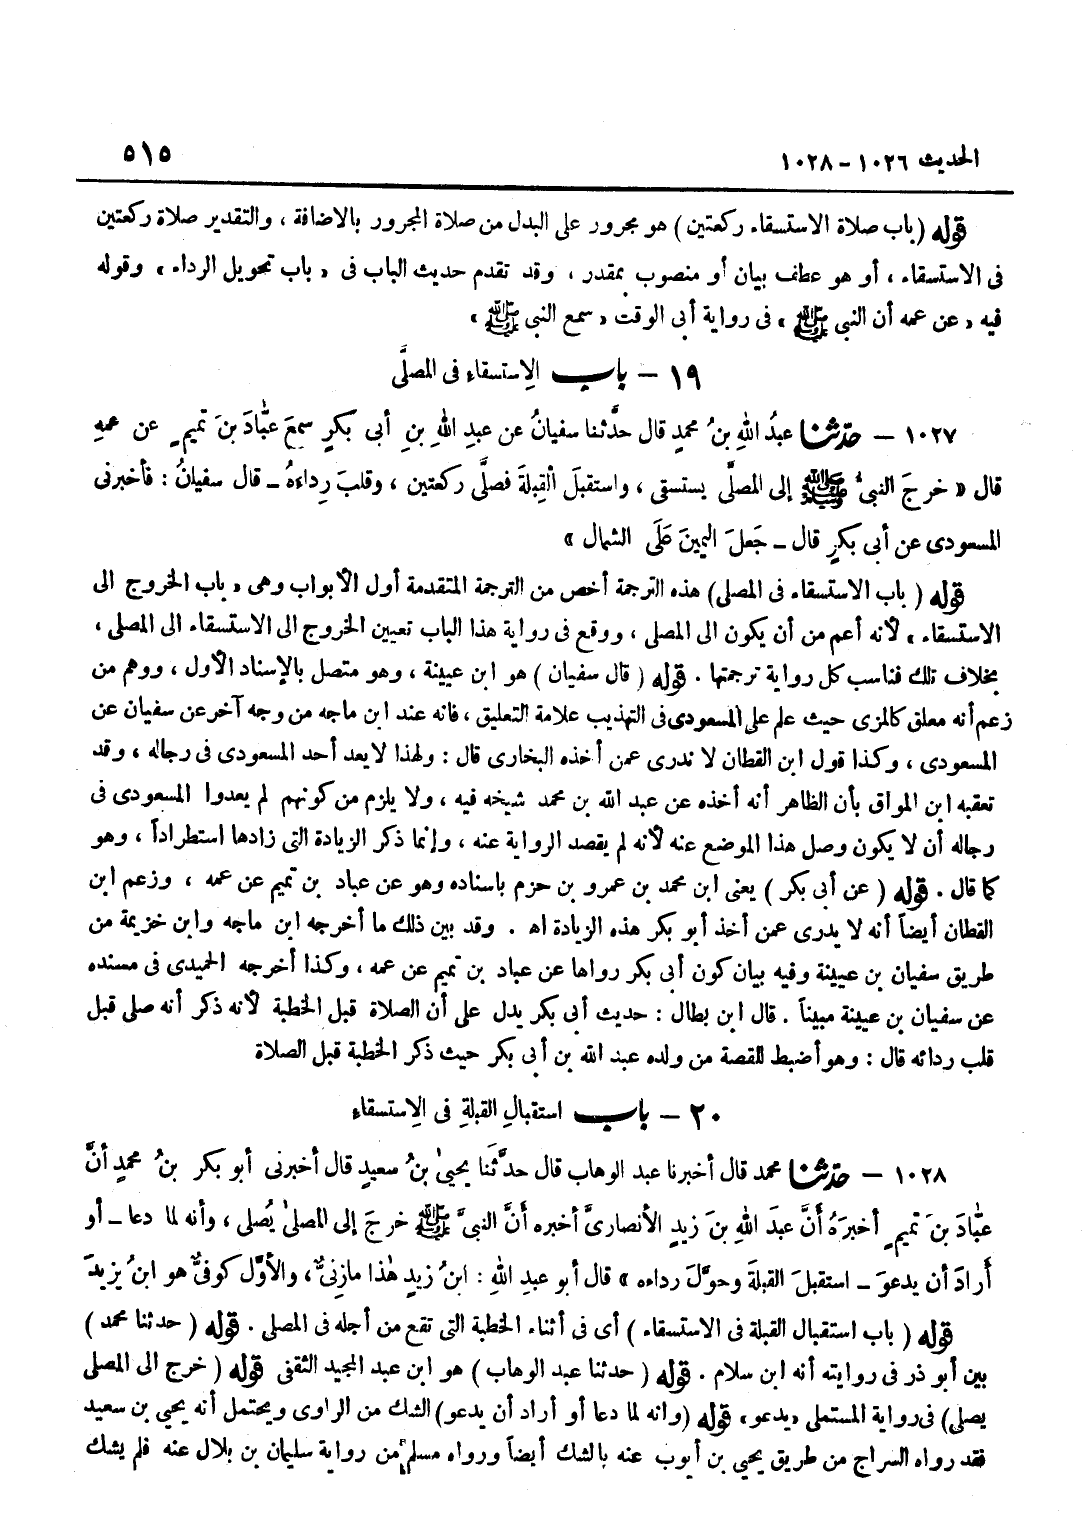 الحديث ١٠٢٦ - ١٠٢٨
٥١٥
قوله (باب صلاة الاستسقاء ركعتين) هو مجرور على البدل من صلاة المجرور بالاضافة ، والتقدير صلاة ركعتين
فى الاستسقاء ، أو هو عطف بيان أو منصوب بمقدر ، وقد تقدم حديث الباب فى « باب تحويل الرداء » وقوله
فيه « عن عمه أن النبى ﷺ » فى رواية أبى الوقت « سمع النبى ﷺ »
١٩ - باب الِاستسقاءِ فى المصلَّى
١٠٢٧ - حدّثنا عبدُ اللهِ بنُ محمدٍ قال حدَّثنا سفيانُ عن عبدِ اللهِ بنِ أبى بكرٍ سمعَ عبَّادَ بنَ تميمٍ عن عمهِ
قال « خرجَ النبىُّ ﷺ إلى المصلَّى يستسقى ، واستقبلَ القِبلةَ فصلَّى ركعتين ، وقلبَ رِداءهُ ـ قال سفيانُ : فأخبرنى
المسعودى عن أبى بكرٍ قال ـ جَعلَ اليمينَ عَلَى الشمال »
قوله ( باب الاستسقاء فى المصلى) هذه الترجمة أخص من الترجمة المتقدمة أول الأبواب وهى « باب الخروج الى
الاستسقاء » لأنه أعم من أن يكون الى المصلى ، ووقع فى رواية هذا الباب تعيين الخروج الى الاستسقاء الى المصلى ،
بخلاف تلك فناسب كل رواية ترجمتها . قوله ( قال سفيان ) هو ابن عيينة ، وهو متصل بالإسناد الأول ، ووهم من
زعم أنه معلق كالمزى حيث علم على المسعودى فى التهذيب علامة التعليق ، فانه عند ابن ماجه من وجه آخر عن سفيان عن
المسعودى ، وكذا قول ابن القطان لا ندرى عمن أخذه البخارى قال : ولهذا لا يعد أحد المسعودى فى رجاله ، وقد
تعقبه ابن المواق بأن الظاهر أنه أخذه عن عبد الله بن محمد شيخه فيه ، ولا يلزم من كونهم لم يعدوا المسعودى فى
رجاله أن لا يكون وصل هذا الموضع عنه لأنه لم يقصد الرواية عنه ، وإنما ذكر الزيادة التى زادها استطراداً ، وهو
كما قال . قوله ( عن أبى بكر ) يعنى ابن محمد بن عمرو بن حزم باسناده وهو عن عباد بن تميم عن عمه ، وزعم ابن
القطان أيضاً أنه لا يدرى عمن أخذ أبو بكر هذه الزيادة اه . وقد بين ذلك ما أخرجه ابن ماجه وابن خزيمة من
طريق سفيان بن عيينة وفيه بيان كون أبى بكر رواها عن عباد بن تميم عن عمه ، وكذا أخرجه الحميدى فى مسنده
عن سفيان بن عيينة مبيناً . قال ابن بطال : حديث أبى بكر يدل على أن الصلاة قبل الخطبة لأنه ذكر أنه صلى قبل
قلب ردائه قال : وهو أضبط للقصة من ولده عبد الله بن أبى بكر حيث ذكر الخطبة قبل الصلاة
٢٠ - باب استقبالِ القبلةِ فى الِاستسقاءِ
١٠٢٨ - حدّثنا محمد قال أخبرنا عبد الوهاب قال حدَّثَنا يحيىٰ بنُ سعيدٍ قال أخبرنى أبو بكر بنُ محمدٍ أنَّ
عبَّادَ بنَ تميمٍ أخبرَهُ أنَّ عبدَ اللهِ بنَ زيدٍ الأنصارىَّ أخبره أنَّ النبىَّ ﷺ خرجَ إلى المصلىٰ يُصلى ، وأنه لما دعا ـ أو
أرادَ أن يدعوَ ـ استقبلَ القبلةَ وحوَّلَ رداءه » قال أبو عبدِ اللهِ : ابنُ زيدٍ هٰذا مازنِىٌّ ، والأوّل كوفىٌّ هو ابنُ يزيدَ
قوله ( باب استقبال القبلة فى الاستسقاء ) أى فى أثناء الخطبة التى تقع من أجله فى المصلى . قوله ( حدثنا محمد )
بين أبو ذر فى روايته أنه ابن سلام . قوله ( حدثنا عبد الوهاب ) هو ابن عبد المجيد الثقفى قوله ( خرج الى المصلى
يصلى) فى رواية المستملى « يدعو » قوله (وانه لما دعا أو أراد أن يدعو) الشك من الراوى ويحتمل أنه يحيى بن سعيد
فقد رواه السراج من طريق يحيى بن أيوب عنه بالشك أيضاً ورواه مسلم من رواية سليمان بن بلال عنه فلم يشك